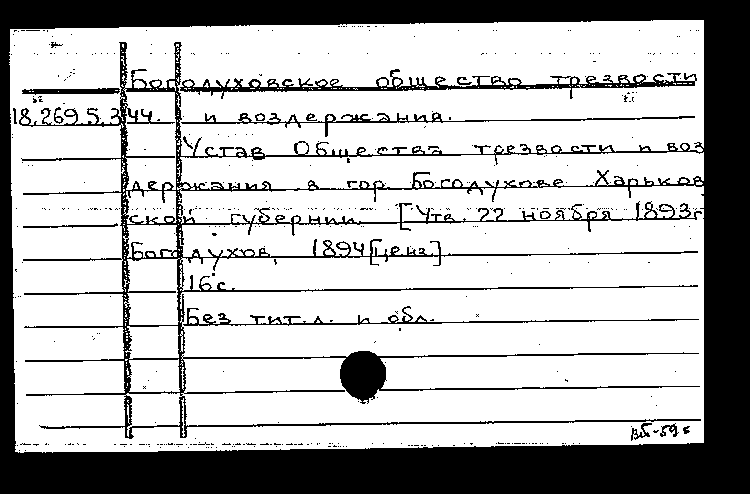 Богодуховское общество трезвости
18.269.5.344. и воздержания.
Устав Общества трезвости и воз
держания в гор. Богодухове Харьков
ской губернии. [Утв. 22 ноября 1893г
Богодухов, 1894 [ценз.]
16 с.
Без тит.л. и обл.